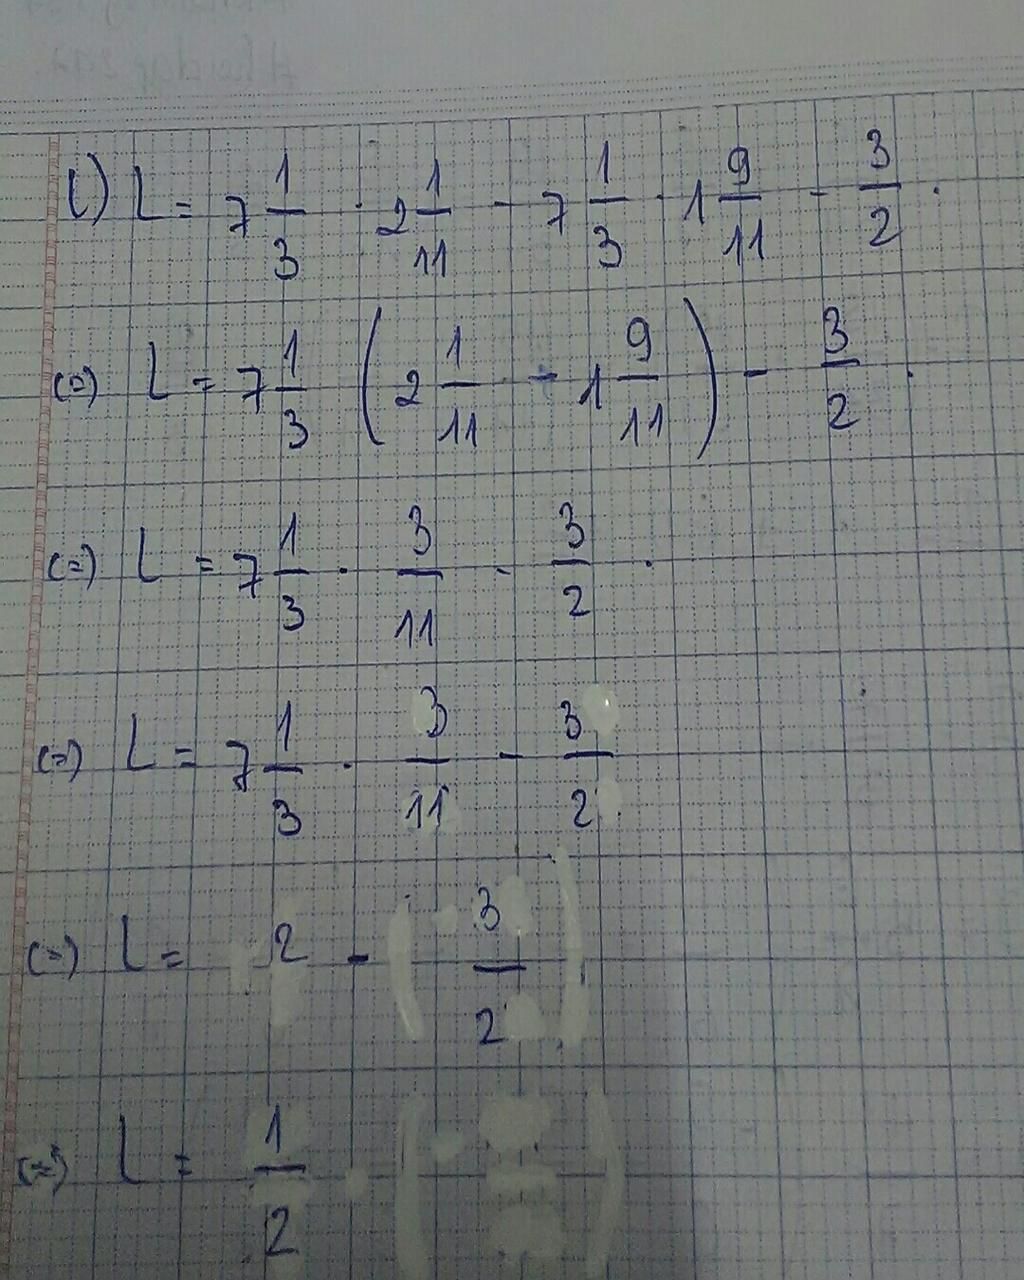 l) L = 7 1/3 · 2 1/11 - 7 1/3 · 1 9/11 - 3/2 .
(=) L = 7 1/3 ( 2 1/11 - 1 9/11 ) - 3/2 .
(=) L = 7 1/3 · 3/11 - 3/2 .
(=) L = 7 1/3 · 3/11 - 3/2
(=) L = 2 - 3/2
(=) L = 1/2